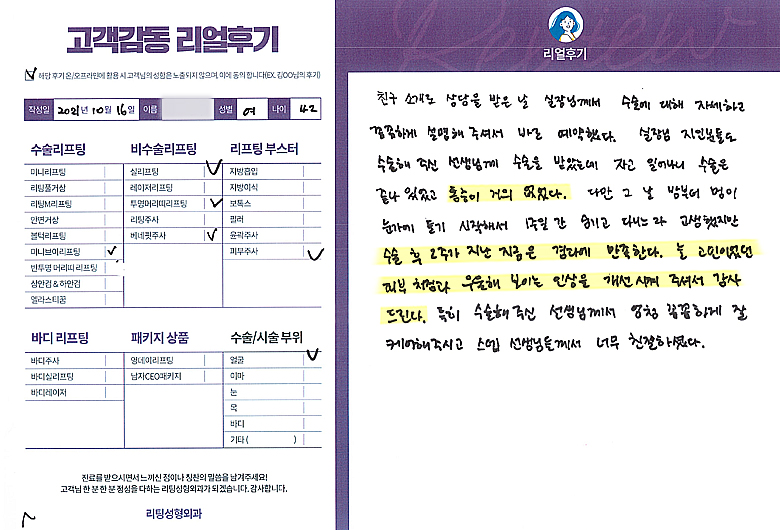 고객감동 리얼후기
해당 후기 온/오프라인에 활용 시 고객님의 성함은 노출되지 않으며, 이에 동의 합니다(EX. 김OO님의 후기)
작성일 2021년 10월 16일 이름 성별 여 나이 42
수술리프팅
미니리프팅
리팅품거상
리팅M리프팅
안면거상
블턱리프팅
미니브이리프팅
반투명 머리띠 리프팅
상안검 & 하안검
엘라스티꿈
비수술리프팅
실리프팅
레이저리프팅
투명머리띠리프팅
리팅주사
비네핏주사
리프팅 부스터
지방흡입
지방이식
보톡스
필러
윤곽주사
피부주사
바디 리프팅
바디주사
바디실리프팅
바디레이저
패키지 상품
영데이리프팅
남자CEO패키지
수술/시술 부위
얼굴
이마
눈
목
바디
기타 ( )
진료를 받으시면서 느끼신 점이나 칭찬의 말씀을 남겨주세요!
고객님 한 분 한 분 정성을 다하는 리팅성형외과가 되겠습니다. 감사합니다.
리팅성형외과
Review
리얼후기
친구 소개로 상담을 받은 날 실장님께서 수술에 대해 자세하고
꼼꼼하게 설명해 주셔서 바로 예약했다. 실장님 지인분들도
수술해 주신 선생님께 수술을 받았는데 자고 일어나니 수술은
끝나 있었고 통증이 거의 없었다. 다만 그 날 밤부터 멍이
눈가에 들기 시작해서 1주일 간 숨기고 다니느라 고생했지만
수술 후 2주가 지난 지금은 결과에 만족한다. 늘 고민이었던
피부 처짐과 우울해 보이는 인상을 개선시켜 주셔서 감사
드린다. 특히 수술해 주신 선생님께서 엄청 꼼꼼하게 잘
케어해주시고 스텝 선생님들께서 너무 친절하셨다.